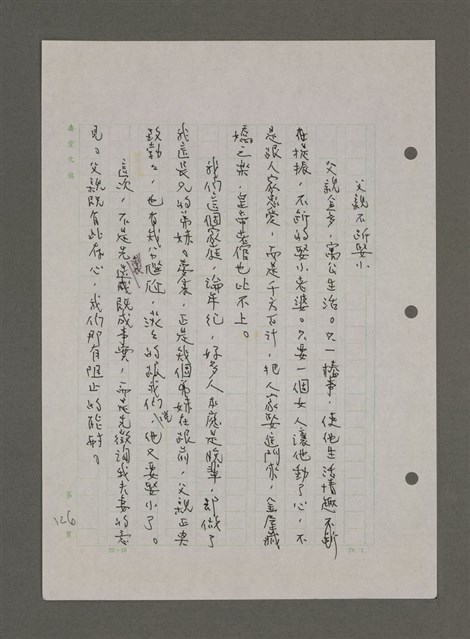 父親不斷娶小
父親多，寓公生活。只一樁事，使他生活情趣不斷
在提振，不斷的娶小老婆。只要一個女人讓他動了心，不
是跟人家戀愛，而是千方百計，把人家娶進門來，金屋藏
嬌之樂，皇帝老倌也比不上。
我們這個家庭，論年紀，好多人本應是晚輩，卻做了
我這長兄的弟妹。妻裏，正是幾個弟妹在跟前，父親正
，也有幾分尷尬，淡淡的跟我們說，他又要娶小了。
這次，不是先造成既成事實，而是先徵詢我夫妻的意
見。父親既有此存心，我們那有阻止的能耐。
第 126 頁